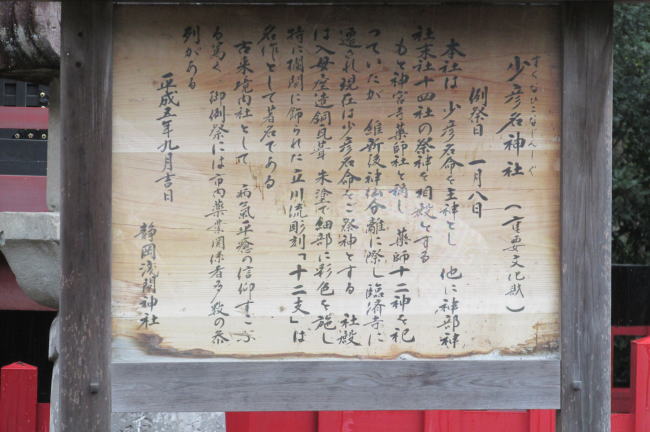 すくなひこなじんじゃ
少彦名神社 (重要文化財)
例祭日 一月八日
本社は 少彦名命を主神とし 他に神部神
社末社十四社の祭神を相殿とする
もと神宮寺薬師社と称し 薬師十二神を祀
っていたが 維新後神仏分離に際し臨済寺に
遷され現在は少彦名命をご祭神とする 社殿
は入母屋造銅瓦葺 朱塗で細部に彩色を施し
特に欄間に飾られた立川流彫刻「十二支」は
名作として著名である
古来境内社として 病氣平癒の信仰すこぶ
る篤く 御例祭には市内薬業関係者多数の参
列がある
平成五年九月吉日
静岡浅間神社